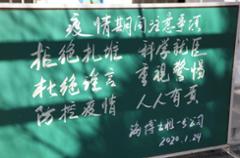 疫情期间注意事项
拒绝扎堆 科学就医
杜绝谣言 重视警惕
防控疫情 人人有责
海博出租一公司
2020.1.29